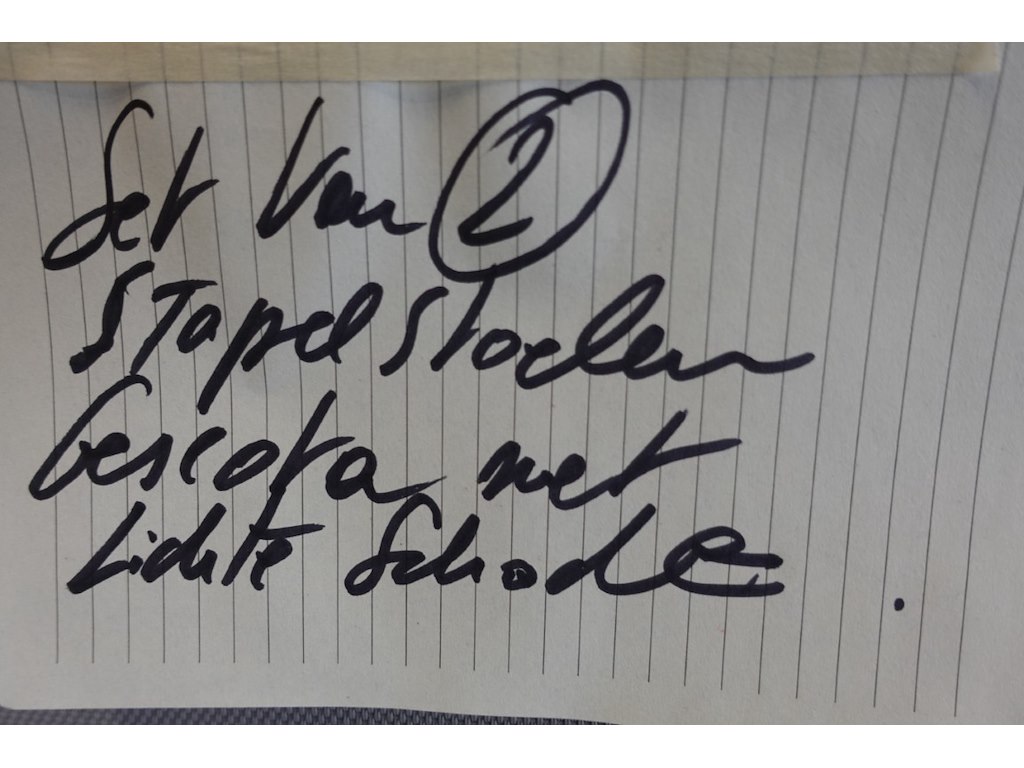 Set van 2
Stapel stoelen
Gescova met
Lichte Schade.